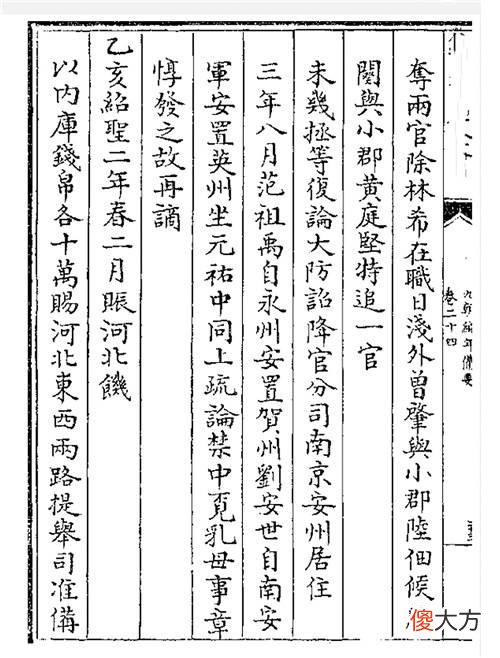 奪兩官除林希在職日淺外曾肇與小郡陸佃候
闕與小郡黄庭堅特追一官
未幾拯等復論大防詔降官分司南京安州居住
三年八月范祖禹自永州安置賀州劉安世自南安
軍安置英州坐元祐中同上疏論禁中覓乳母事章
惇發之故再謫
乙亥紹聖二年春二月賑河北饑
以内庫錢帛各十萬賜河北東西兩路提舉司准備
九朝編年備要
卷二十四
傻大方